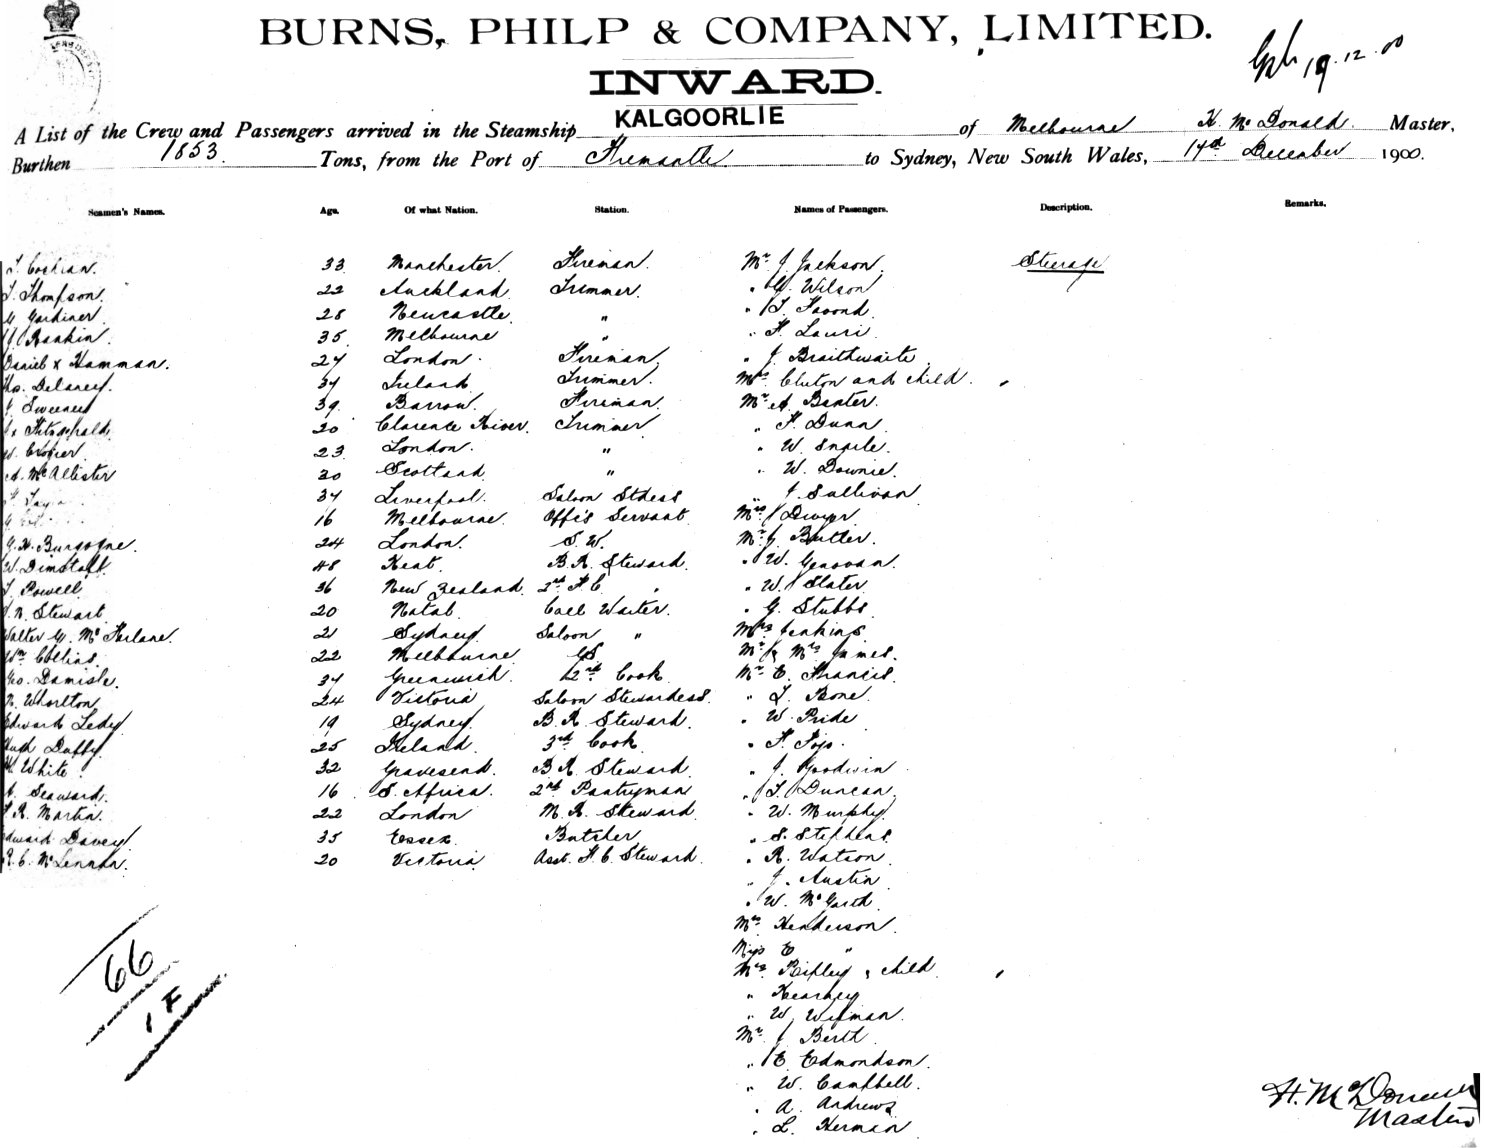 BURNS, PHILP & COMPANY, LIMITED.
19.12.00
INWARD.
A List of the Crew and Passengers arrived in the Steamship KALGOORLIE of Melbourne H. McDonald. Master,
Burthen 1853. Tons, from the Port of Fremantle to Sydney, New South Wales, 17th December 1900.
Seamen's Names. Age. Of what Nation. Station. Names of Passengers. Description. Remarks.
T. Cochran. 33 Manchester. Fireman. Mr J. Jackson. Steerage
T. Thompson. 22 Auckland. Trimmer. " G. Wilson
G. Gardiner. 28 Newcastle. " " T.
Rankin. 35. Melbourne " " F. Lauri
Daniel x Hamman. 27 London. Fireman. " J. Braithwaite
Tho. Delaney. 37 Ireland Trimmer. Mrs Cluton and child.
J. Sweeney 39. Barrow. Fireman. Mr A. Baxter.
x Fitzgerald 20 Clarence River. Trimmer " F. Dunn
W. Crozier. 23 London. " " W. Engile.
A. McAllister 30 Scotland " " W. Downie.
37 Liverpool. Saloon Stdess " J. Sullivan
16 Melbourne. Offi's Servant Mrs Dwyer
G. H. Burgogne. 24 London. S. W. Mr G. Butler.
W. Dimstaff 48 Kent. B. R. Steward. " W. Genovan
T. Powell 36 New Zealand. 2nd F C " " W. Slater
N. Stewart. 20 Natal. Call Waiter. " G. Stubbs
Walter G. McFarlane. 21 Sydney. Saloon " Mrs Jenkins.
Wm Collins. 22 Melbourne GS Mr & Mrs James.
Geo. Damish. 37 Greenwich. 2nd Cook Mr E. Francis.
N. Wharlton 24 Victoria Saloon Stewardess. " T. Bone
Edward Ledy 19 Sydney. B. R. Steward. " W. Pride
Hugh Duffy. 25 Ireland. 3rd Cook. " F.
M. White. 32 Gravesend. B R. Steward. " J. Goodwin
A. Seaward. 16 S. Africa. 2nd Pantryman " T. Duncan.
F. R. Martin. 22 London M. R. Steward. " W. Murphy
Edward Davey. 35 Essex. Butcher " S. Stephens.
R. C. McLennan. 20 Victoria Asst. F. C. Steward. " R. Watson
" J. Austin
" W. McGarth
Mrs Henderson.
Miss E "
Mrs Ripley & child
" Kearney
" W. Wifman.
Mr J. Berth
" E. Edmondson.
" W. Campbell.
" A. Andrews
" L. Herman
66
1 F
H. McDonald
Master